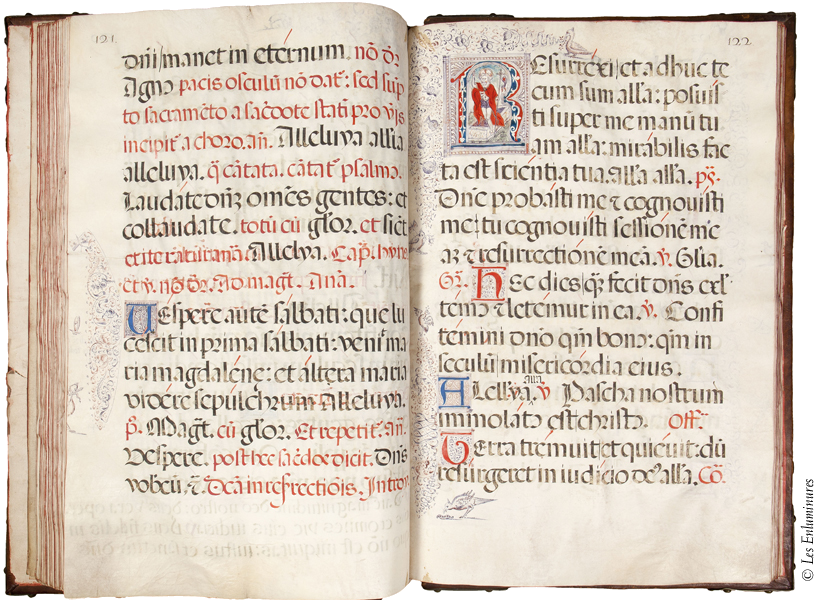 121
dñi manet in eternum. nō dr̄
Agnꝰ pacis osculū nō dat᷑: sed sūp
to sacramēto a sac̄dote stati pro vīs
incipit᷑ a choro. añ. Alleluya allīa
alleluya. q̄ cātata. cātat᷑ psalmꝰ.
Laudate dñz omēs gentes: et
collaudate. totū cū glor. et sic̄t
Allelva. Cap̄.
et v̄. nō dr̄. Ad magt̄. Aña.
Vespere autē sabbati: que lu
cescit in prima sabbati: venit ma
ria magdalene: et altera maria
videre sepulchrum. Alleluya.
p̄. Magt̄. cū glor. Et repetit᷑. añ.
Vespere. post hec sac̄doc dicit. Dñs
vobcū. ⁊. Deā in refrectiōis. Introy.
122
Resurrexi et adhuc te
cum sum alla: posuis
ti super me manū tu
am alla: mirabilis fac
ta est scientia tua. alla alla. pȳ.
Dñe probasti me ⁊ cognovisti
me: tu cognovisti sessionē me
aꝫ ⁊ resurrectionē meā. v̄. Glia.
Gr̄. Hec dies q̄ꝫ fecit dñs exl
temꝰ ⁊ letemur in ea. v̄. Confi
temini dño qm̄ bonꝰ: qm̄ in
seculū misericordia eius.
Allelva. alla v̄ Pascha nostrum
immolatꝰ est christꝰ. Off.
Terra tremuit et quievit: dū
resurgeret in iudicio deꝰ alla. Cō.
© Les Enluminures